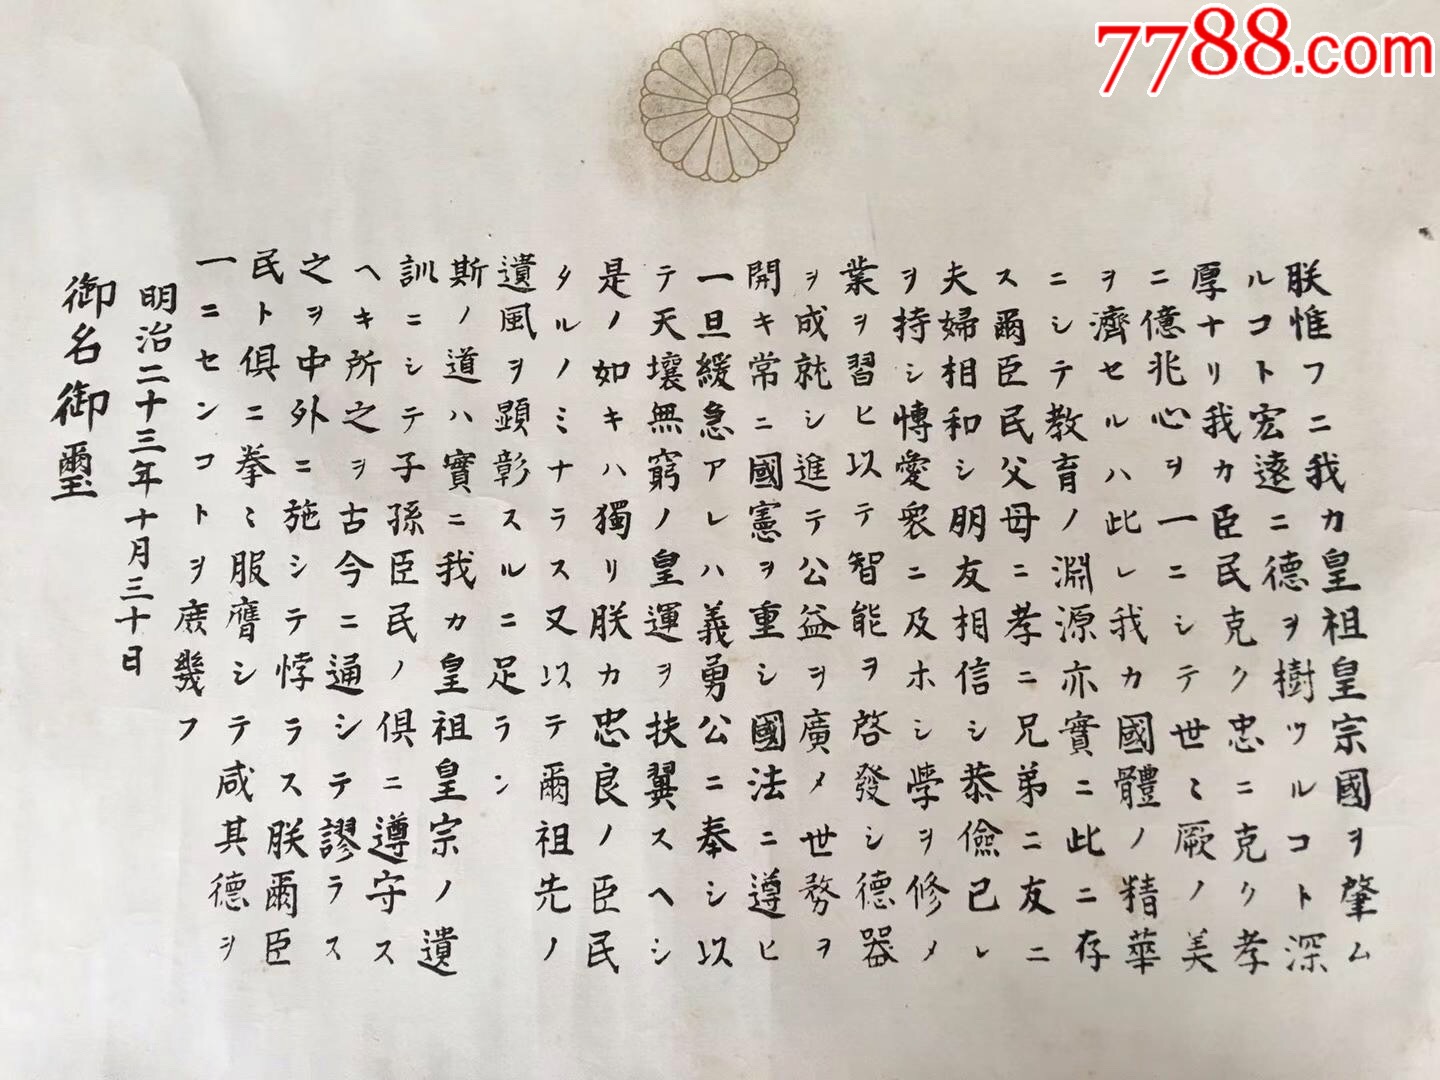 7788.com
朕惟フニ我カ皇祖皇宗國ヲ肇ム
ルコト宏遠ニ德ヲ樹ツルコト深
厚ナリ我カ臣民克ク忠ニ克ク孝
ニ億兆心ヲ一ニシテ世ミ厥ノ美
ヲ濟セルハ此レ我カ國體ノ精華
ニシテ教育ノ淵源亦實ニ此ニ存
ス爾臣民父母ニ孝ニ兄弟ニ友ニ
夫婦相和シ朋友相信シ恭儉己レ
ヲ持シ博愛衆ニ及ホシ學ヲ修メ
業ヲ習ヒ以テ智能ヲ啓發シ德器
ヲ成就シ進テ公益ヲ廣メ世務ヲ
開キ常ニ國憲ヲ重シ國法ニ遵ヒ
一旦緩急アレハ義勇公ニ奉シ以
テ天壤無窮ノ皇運ヲ扶翼スヘシ
是ノ如キハ獨リ朕カ忠良ノ臣民
タルノミナラス又以テ爾祖先ノ
遺風ヲ顯彰スルニ足ラン
斯ノ道ハ實ニ我カ皇祖皇宗ノ遺
訓ニシテ子孫臣民ノ俱ニ遵守ス
ヘキ所之ヲ古今ニ通シテ謬ラス
之ヲ中外ニ施シテ悖ラス朕爾臣
民ト俱ニ拳ミ服膺シテ咸其德ヲ
一ニセンコトヲ庻幾フ
明治二十三年十月三十日
御名御璽